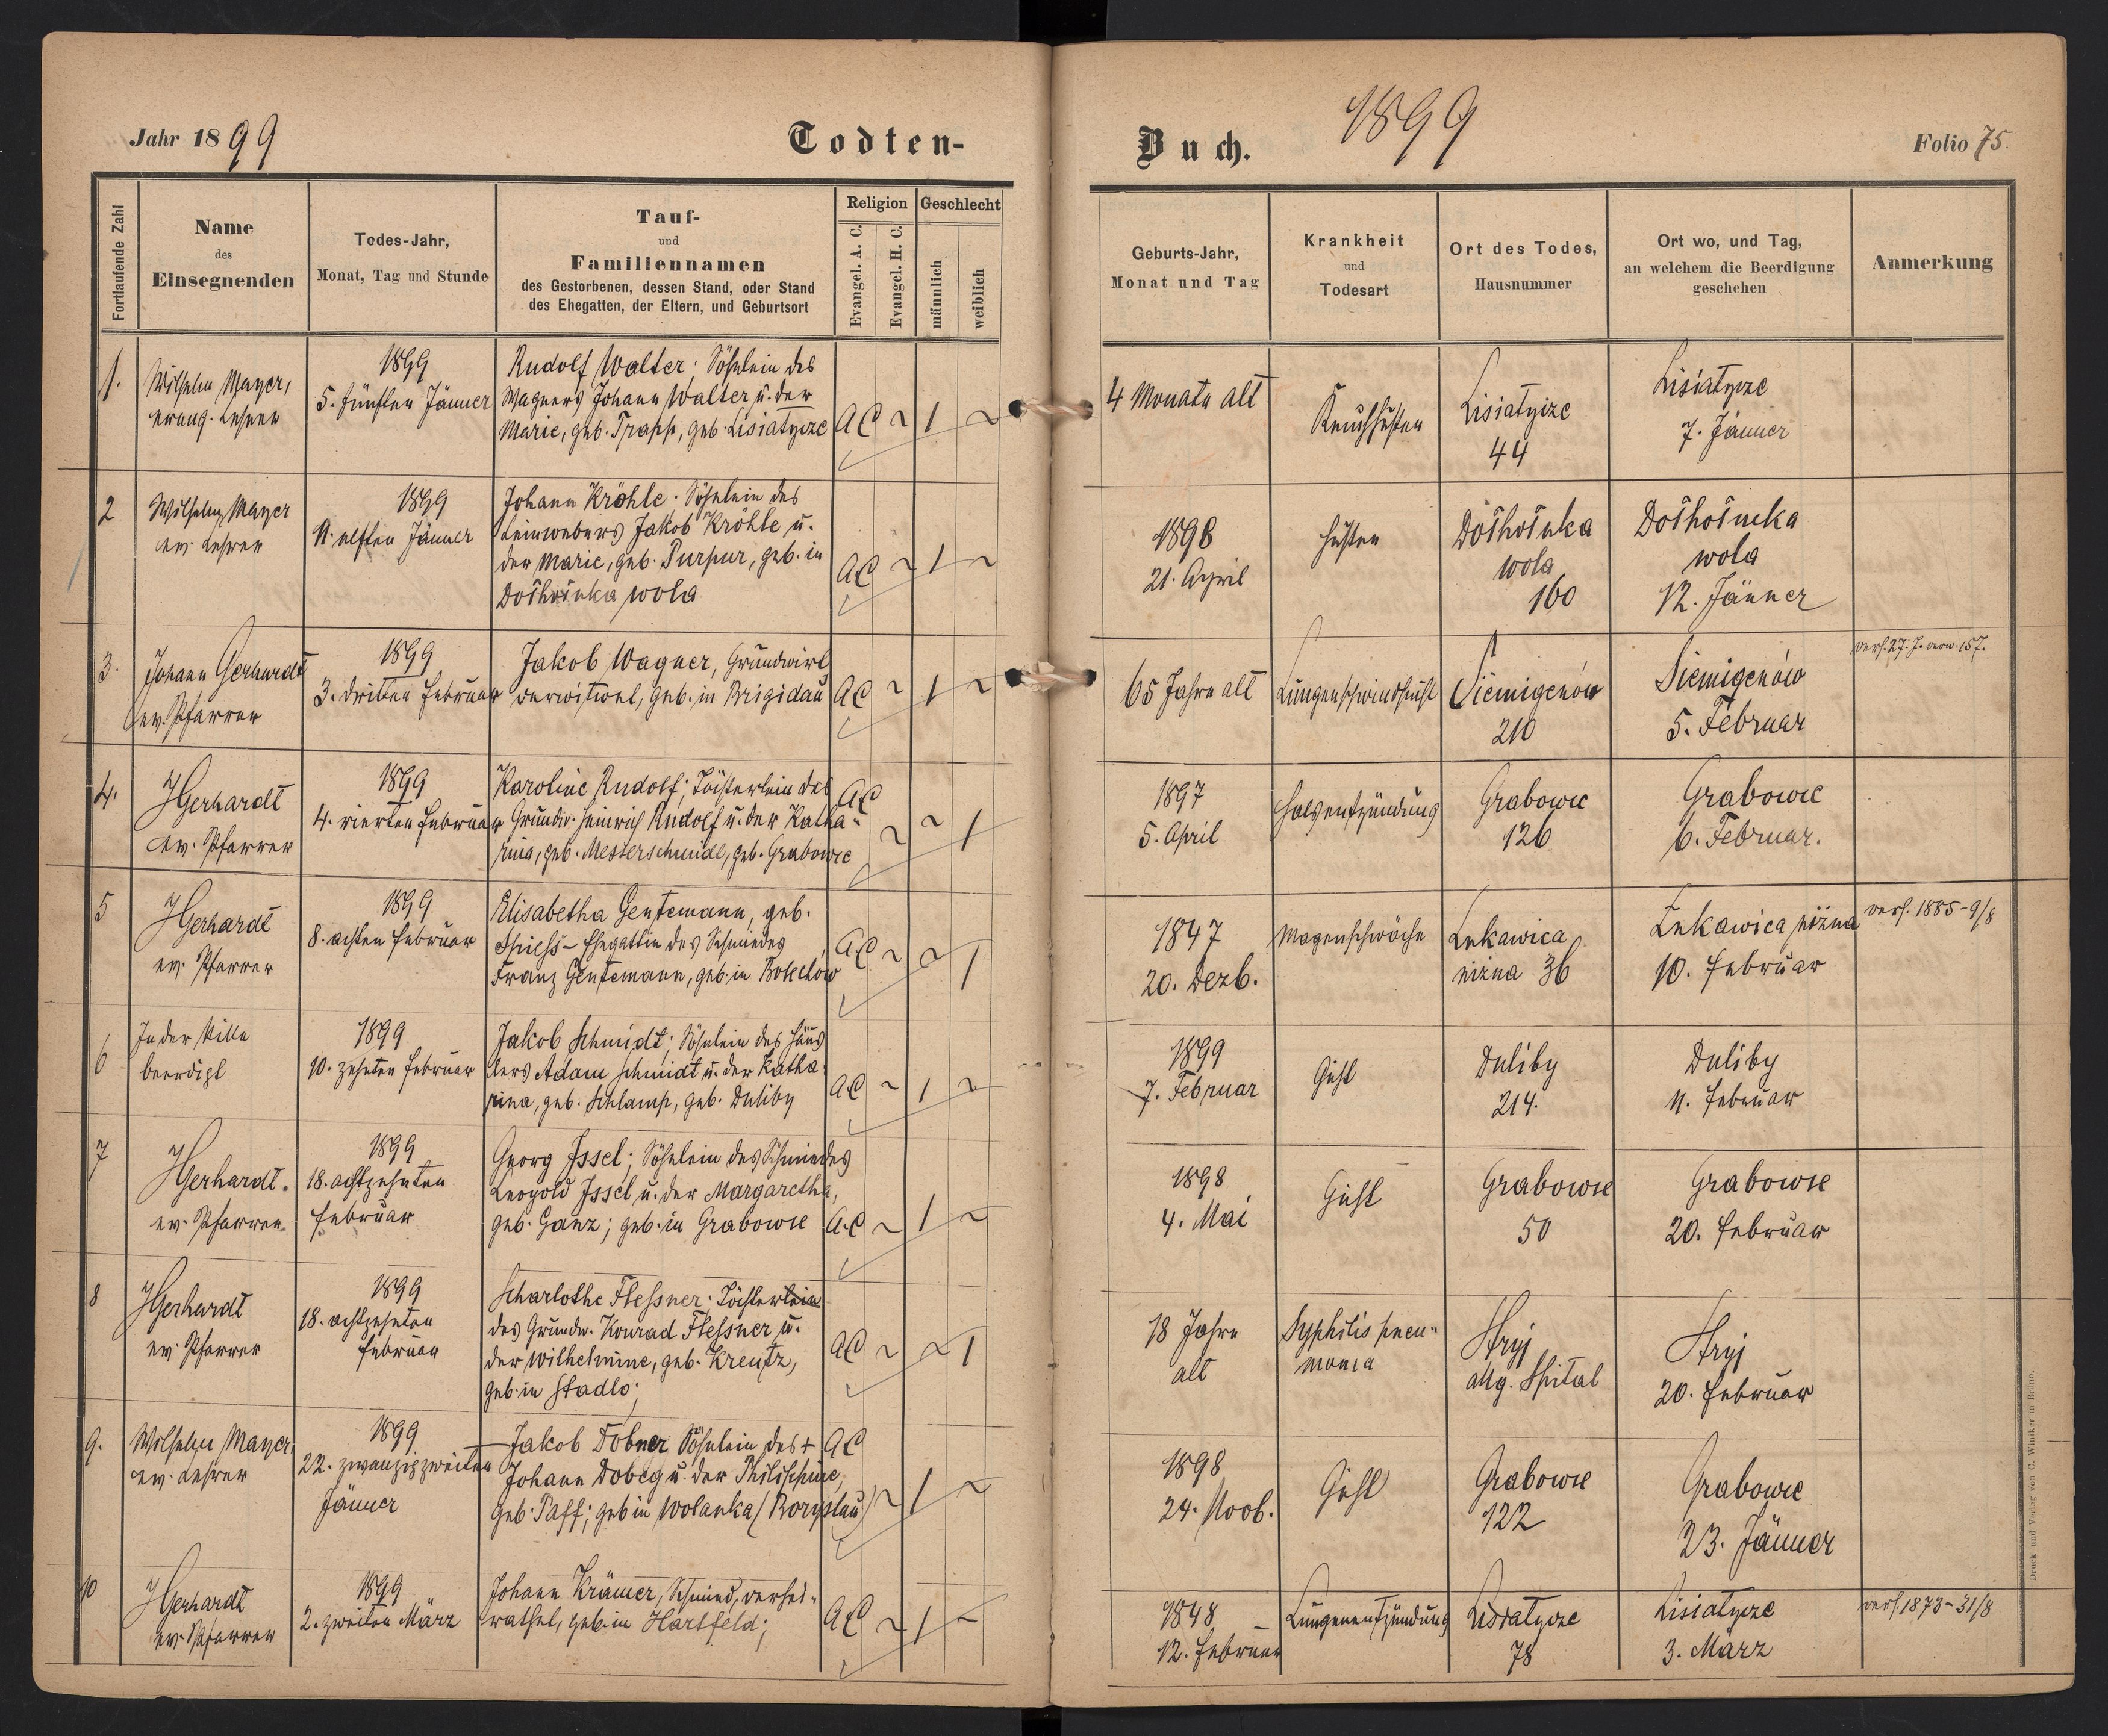 Jahr 1899
Todten-
Buch.
1899
Folio 75.
Fortlaufende Zahl
Name
des
Einsegnenden
Todes-Jahr,
Monat, Tag und Stunde
Tauf-
und
Familiennamen
des Gestorbenen, dessen Stand, oder Stand
des Ehegatten, der Eltern, und Geburtsort
Religion
Evangel. A. C.
Evangel. H. C.
Geschlecht
männlich
weiblich
Geburts-Jahr,
Monat und Tag
Krankheit
und
Todesart
Ort des Todes,
Hausnummer
Ort wo, und Tag,
an welchem die Beerdigung
geschehen
Anmerkung
1.
Wilhelm Mayer,
evang. Lehrer
1899
5. fünften Jänner
Rudolf Walter; Söhnlein des
Wagners Johann Walter u. der
Marie, geb. Trapp, geb. Lisiatycze
AC ~ 1 ~
4 Monate alt
Keuchhusten
Lisiatyize
44
Lisiatycze
7. Jänner
2
Wilhelm Mayer
ev. Lehrer
1899
11. elften Jänner
Johann Kröhle. Söhnlein des
Leinwebers Jakob Kröhle u.
der Marie, geb. Purpur, geb. in
wola
AC ~ 1 ~
1898
21. April
Husten
wola
160
wola
12. Jänner
3.
Johann Gerhardt
ev. Pfarrer
1899
3. dritten Februar
Jakob Wagner, Grundwirt
verwitwet, geb. in Brigidau
AC ~ 1 ~
65 Jahre alt
Lungenschwindsucht
Siemigenów
210
Siemigenów
5. Februar
4.
JGerhardt
ev. Pfarrer
1899
4. vierten Februar
Karoline Rudolf; Töchterlein des
Grundw. Heinrich Rudolf u. der Katha-
rina, geb. Messerschmidt, geb. Grabowce
AC ~ ~ 1
1897
5. April
Halsentzündung
Grabowce
126
Grabowce
6. Februar.
5
JGerhardt
ev. Pfarrer
1899
8. achten Februar
Elisabetha Gentemann, geb.
Spiess - Ehegattin des Schmiedes
Franz Gentemann, geb. in Bolechów
AC ~ ~ 1
1847
20. Dezb.
Magenschwäche
Lukawica
niżna 36
Łukawica niżna
10. Februar
verh. 1885-9/8
6
In der Stille
beerdigt
1899
10. zehnten Februar
Jakob Schmidt; Söhnlein des Häus
lers Adam Schmidt u. der Katha
rina, geb. Schlamp, geb. Duliby
AC ~ 1 ~
1899
7. Februar
Gicht
Duliby
214.
Duliby
11. Februar
7
JGerhardt.
ev. Pfarrer.
1899
18. achtzehnten
Februar
Georg Issel; Söhnlein des Schmiedes
Leopold Issel u. der Margaretha,
geb. Ganz; geb. in Grabowce
A.C ~ 1 ~
1898
4. Mai
Gicht
Grabowce
50
Grabowce
20. Februar
8
JGerhardt
ev. Pfarrer
1899
18. achtzehnten
Februar
Scharlothe Flessner; Töchterlein
des Grundw. Konrad Flessner u.
der Wilhelmine, geb. Kreutz,
geb. in Stadlo;
AC ~ ~ 1
18 Jahre
alt
Syphilis pneu-
monia
Stryj
allg. Spital
Stryj
20. Februar
9.
Wilhelm Mayer
ev. Lehrer
1899
22. zwanzigzweiten
Jänner
Jakob Dobner Söhnlein des +
Johann Dobeg u. der Philippine,
geb. Paff; geb in Wolanka (Boryslau)
AC ~ 1 ~
1898
24. Novb.
Gicht
Grabowce
122
Grabowce
23. Jänner
10
JGerhardt
ev. Pfarrer
1899
2. zweiten März
Johann Krämer, Schmied, verhei-
rathet, geb. in Hartfeld;
AC ~ 1 ~
1848
12. Februar
Lungenentzündung
Lisiatycze
78
Lisiatycze
3. März
verh. 1873-31/8
Druck und Verlag von C. Winiker in Brünn.